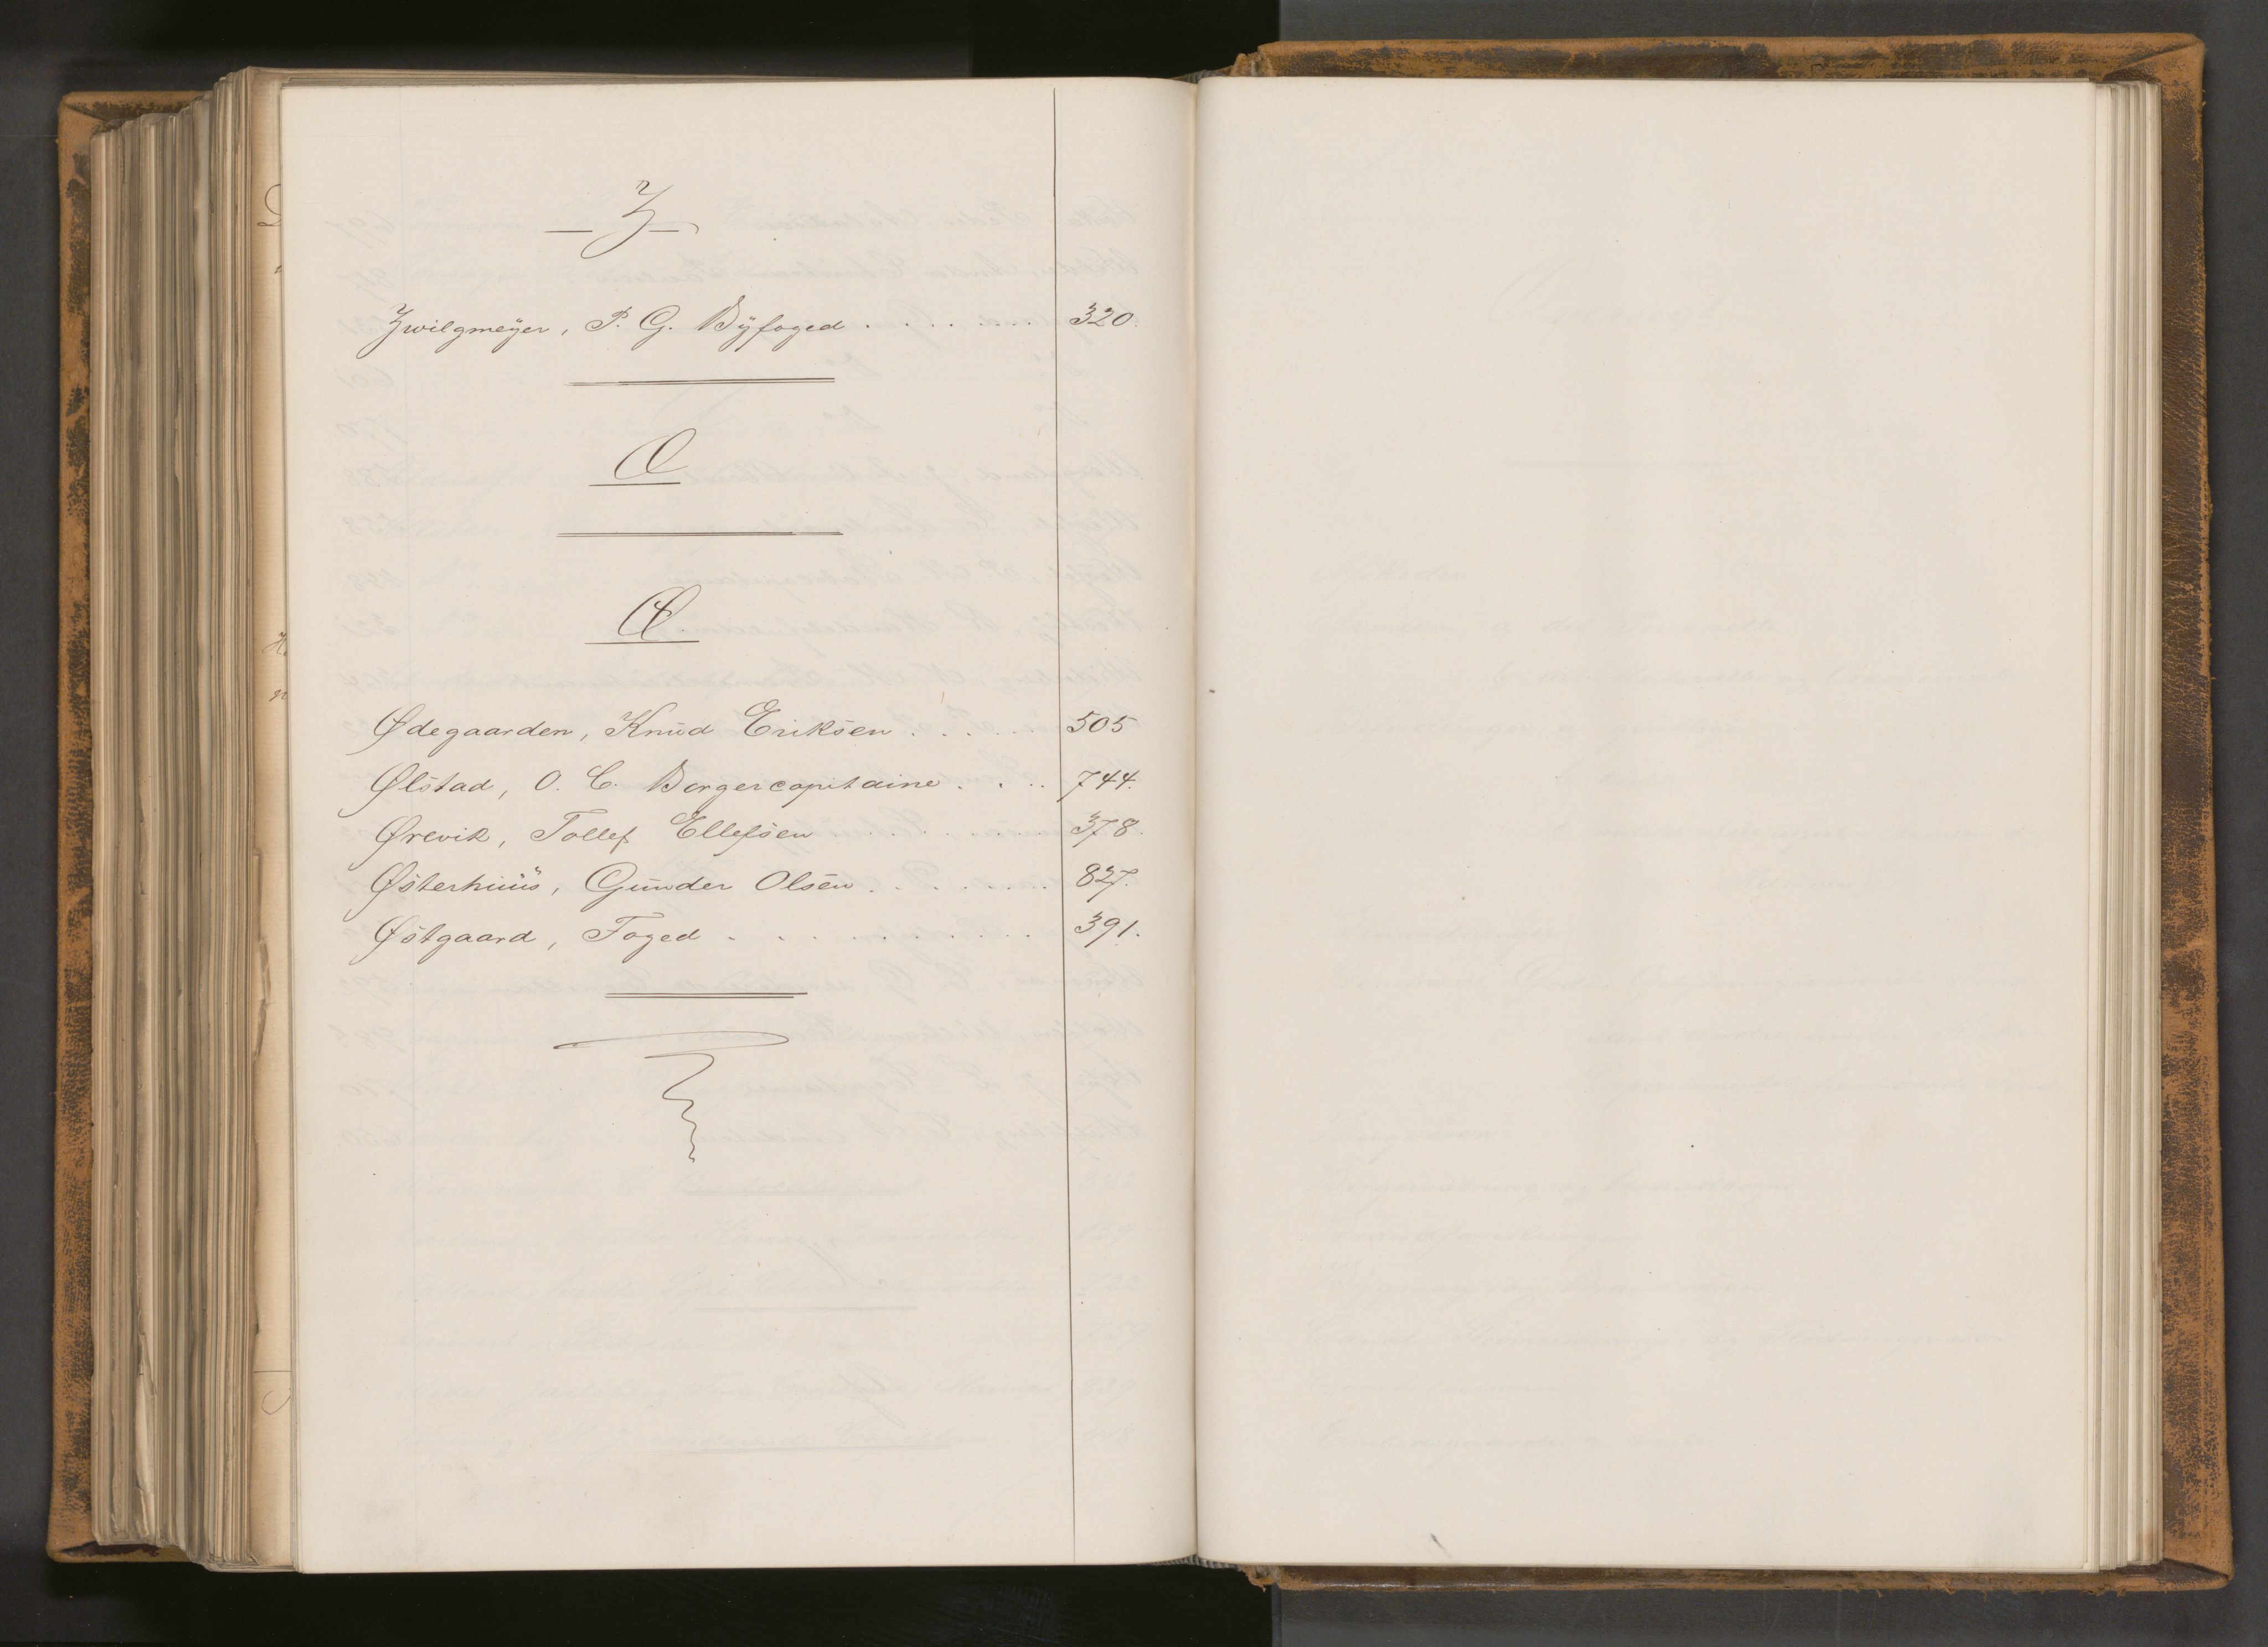 Z
Zwilgmeÿer, P. G. Bÿfoged . . . . . . . 320.
Æ
Ø.
Ødegaarden, Knud Eriksen . . . . . . 505
Ølstad, O. C. Borgercapitaine . . . . 744.
Ørevik, Tollef Ellefsen . . . . . . . . . 378.
Østerhuus, Gunder Olsen . . . . . . . 827.
Østgaard, Foged . . . . . . . . . . . 391.